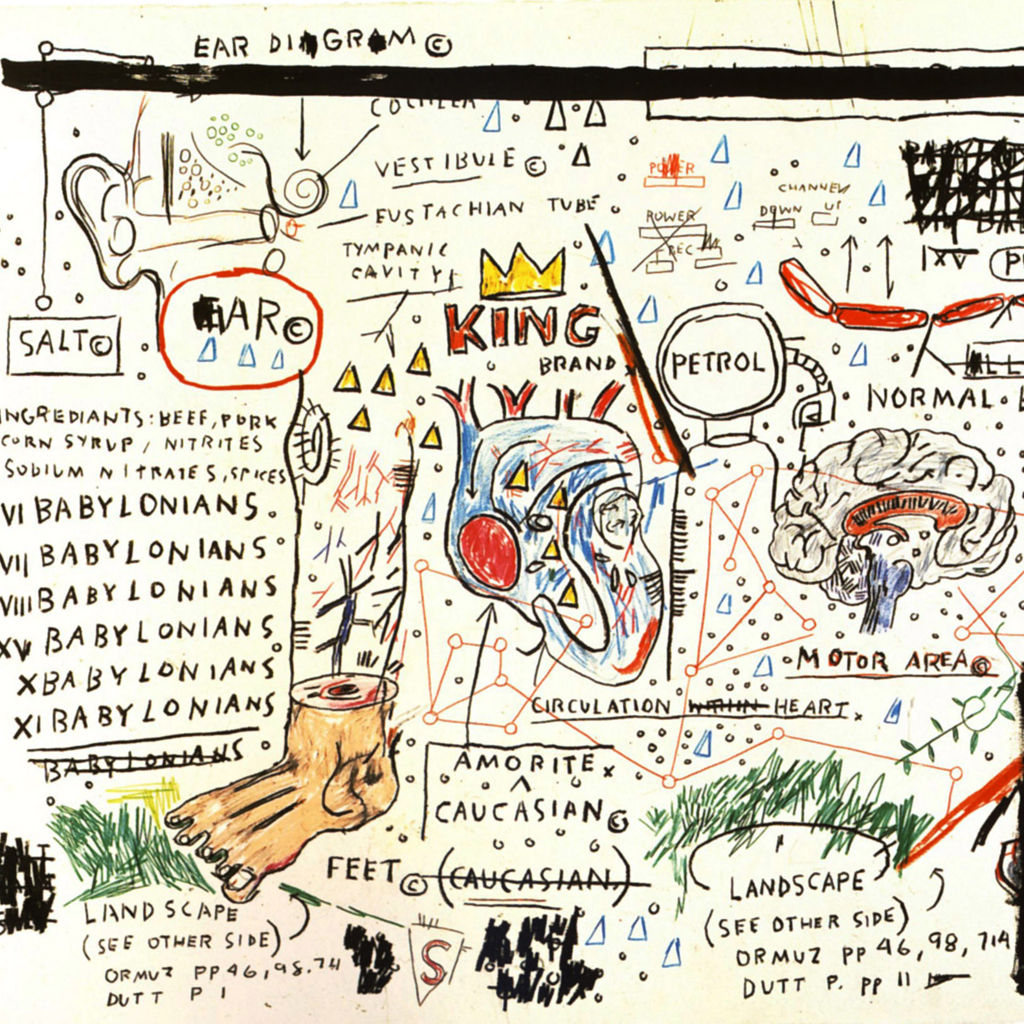 EAR DIAGRAM ©
COCHLEA
VESTIBULE ©
EUSTACHIAN TUBE
TYMPANIC
CAVITY
SALT ©
EAR ©
KING
BRAND
POWER
POWER
REC
CHANNEL
DOWN UP
IXV
PETROL
NORMAL
INGREDIANTS: BEEF, PORK
CORN SYRUP, NITRITES
SODIUM NITRATES, SPICES
VI BABYLONIANS.
VII BABYLONIANS
VIII BABYLONIANS
XV BABYLONIANS
X BABYLONIANS
XI BABYLONIANS
BABYLONIANS
MOTOR AREA ©
CIRCULATION WITHIN HEART.
AMORITE
CAUCASIAN ©
FEET © (CAUCASIAN.)
LANDSCAPE
(SEE OTHER SIDE)
ORMUZ PP 46, 98, 714
DUTT P 1
S
LANDSCAPE
(SEE OTHER SIDE)
ORMUZ PP 46, 98, 714
DUTT P. PP 11